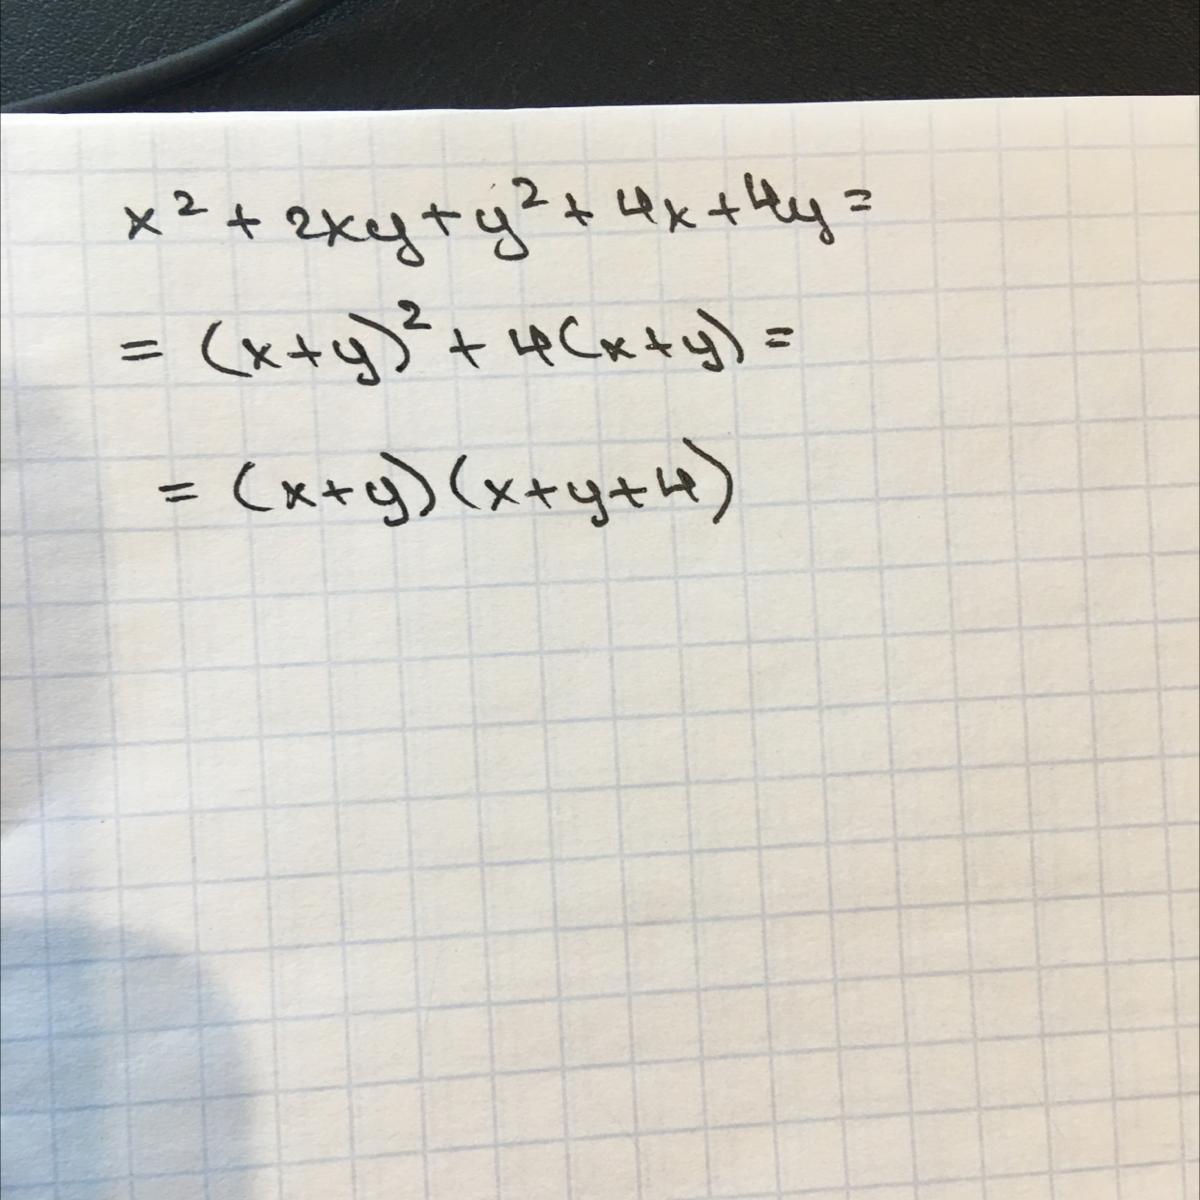 x² + 2xy + y² + 4x + 4y =
= (x+y)² + 4(x+y) =
= (x+y)(x+y+4)